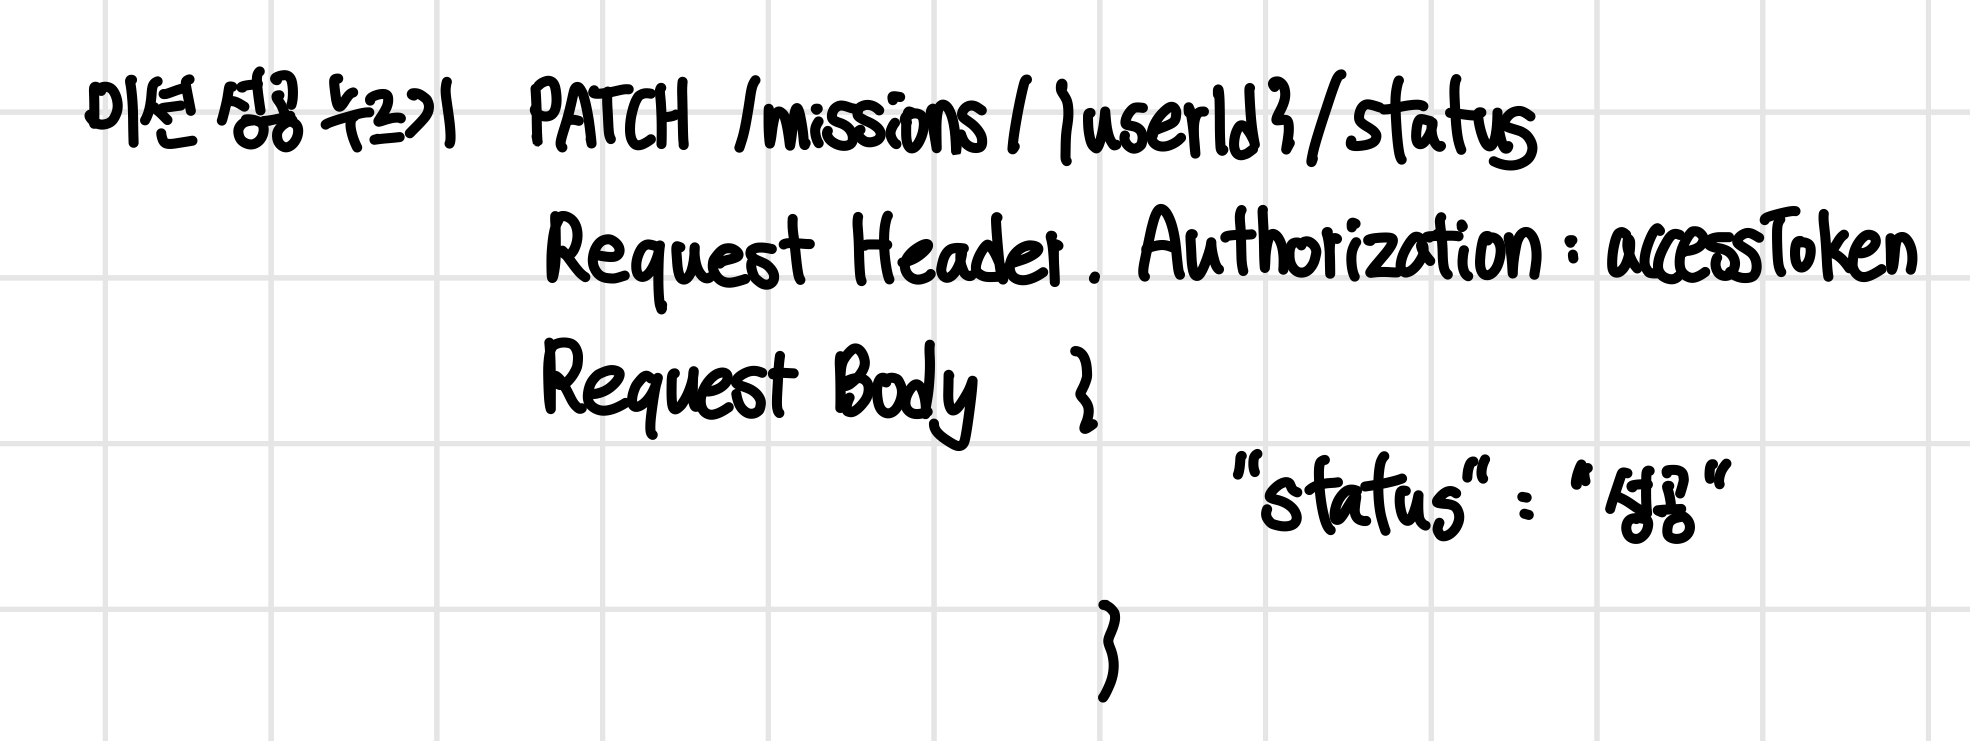 미션 성공 누르기 PATCH /missions/{userId}/status
Request Header. Authorization : accessToken
Request Body {
"status" : "성공"
}